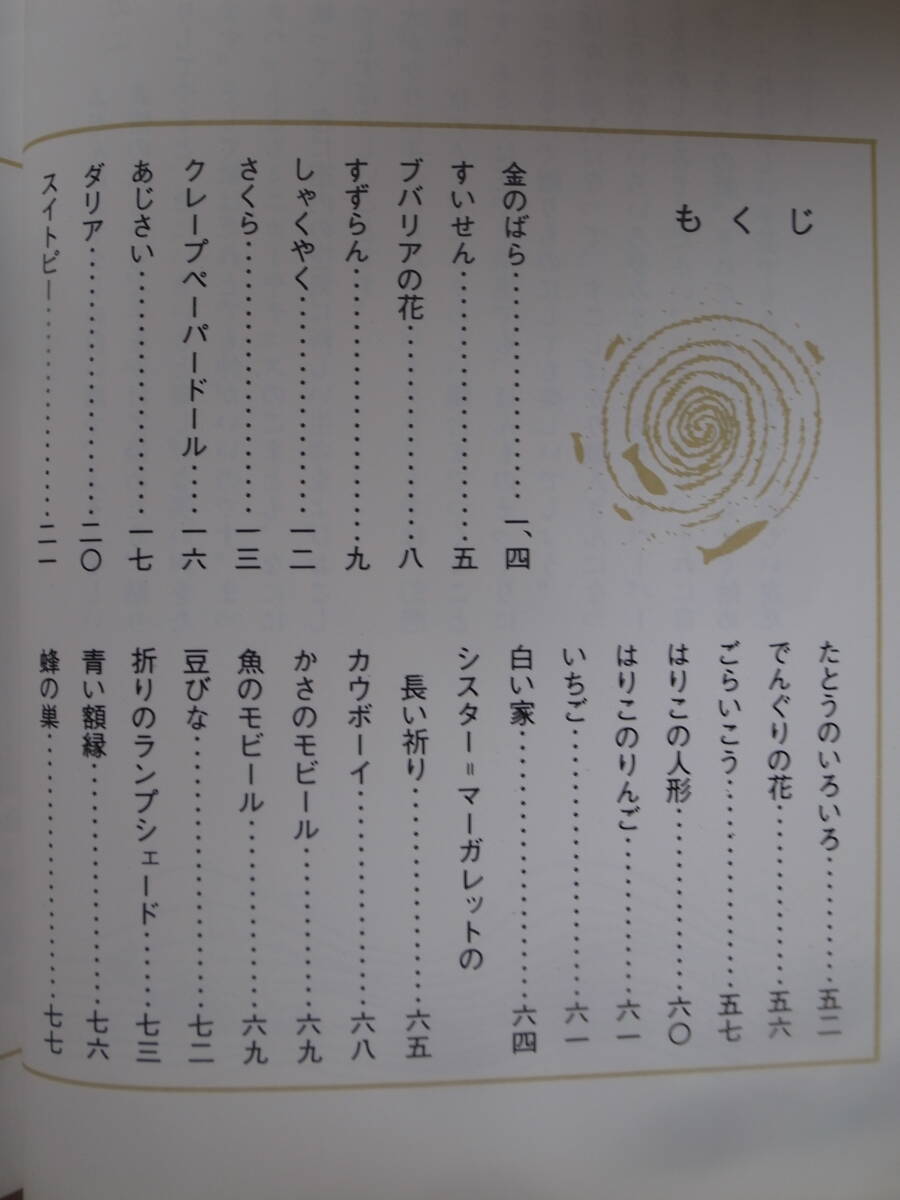 もくじ
金のばら……………………一、四
すいせん……………………五
ブバリアの花……………………八
すずらん……………………九
しゃくやく……………………一二
さくら……………………一三
クレープペーパードール…一六
あじさい……………………一七
ダリア……………………二〇
スイトピー……………………二一
たとうのいろいろ…………五二
でんぐりの花……………五六
ごらいこう………………五七
はりこの人形……………六〇
はりこのりんご…………六一
いちご……………………六一
白い家……………………六四
シスター＝マーガレットの
長い祈り…………………六五
カウボーイ………………六八
かさのモビール…………六九
魚のモビール……………六九
豆びな……………………七二
折りのランプシェード……七三
青い額縁…………………七六
蜂の巣……………………七七